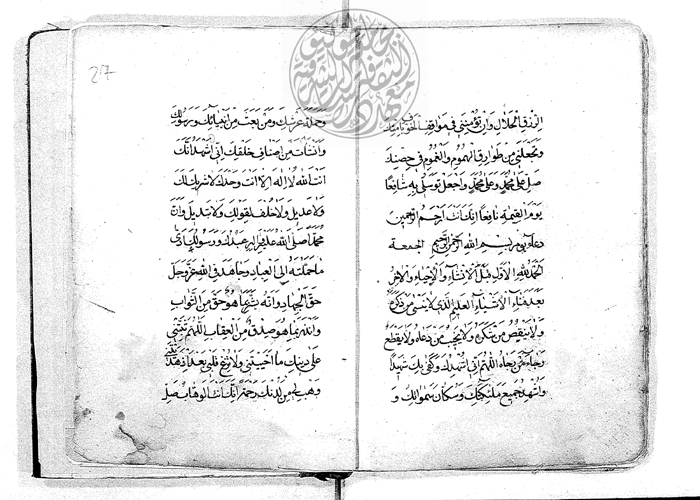 الرزق الحلال وان تؤمنني في مواقف الخوف بامنك
وتجعلني من طوارق الهموم والغموم في حصنك
صل على محمد وعلى محمد واجعل توسلي به شافعا
يوم القيمة نافعا انك انت ارحم الراحمين
دعاء يوم بسم الله الرحمن الرحيم الجمعة
الحمد لله الاول قبل الانشاء والاحياء والاخر
بعد فناء الاشياء العليم الذي لا ينسى من ذكره
ولا ينقص من شكره ولا يخيب من دعاه ولا يقطع
رجاء من رجاه اللهم اني اشهدك وكفى بك شهيدا
واشهد جميع ملئكتك وسكان سمواتك و
27
وحملة عرشك ومن بعثت من انبيائك ورسولك
وانشأت من اصناف خلقك اني اشهد انك
انت الله لا اله الا انت وحدك لا شريك لك
ولا عديل ولا خلف لقولك ولا تبديل وان
محمدا صلى الله عليه واله عبدك ورسولك ادى
ما حملته الى العباد وجاهد في الله عز وجل
حق الجهاد وانه بشر بما هو حق من الثواب
وانذر بما هو صدق من العقاب اللهم ثبتني
على دينك ما احييتني ولا تزغ قلبي بعد اذ هديتني
وهب لي من لدنك رحمة انك انت الوهاب صل